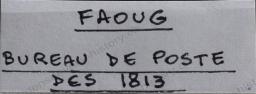 FAOUG
BUREAU DE POSTE
DES 1813